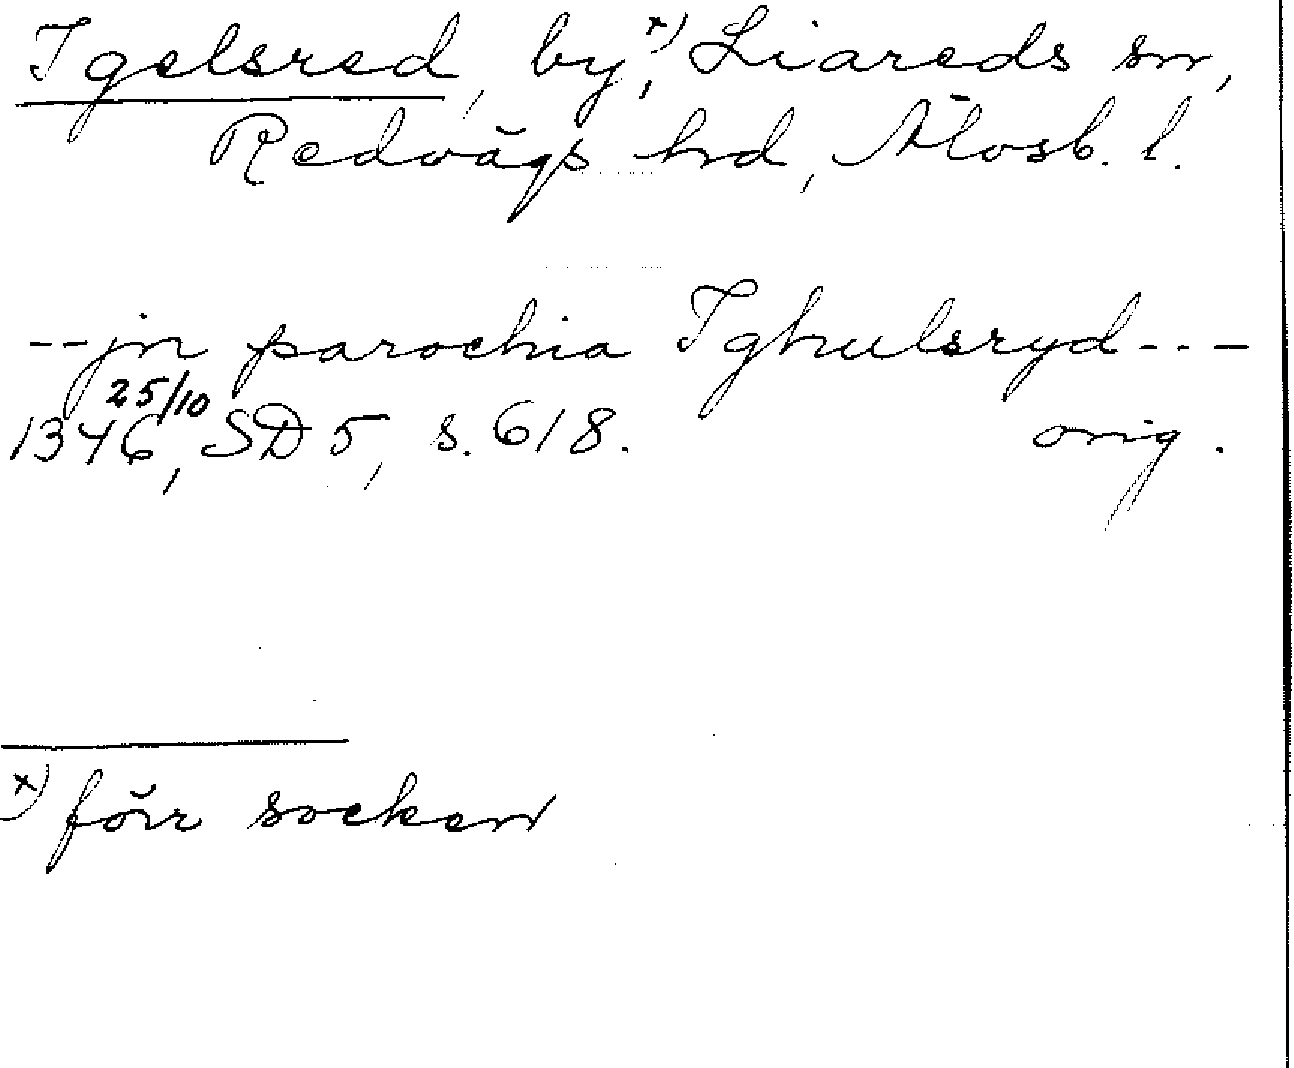 Igelsred, by,ˣ⁾ Liareds sn,
Redvägs hd, Älvsb. l.
--jn parochia Ighulsryd---
25/10
1346, SD 5, s. 618. orig.
x) förr socken